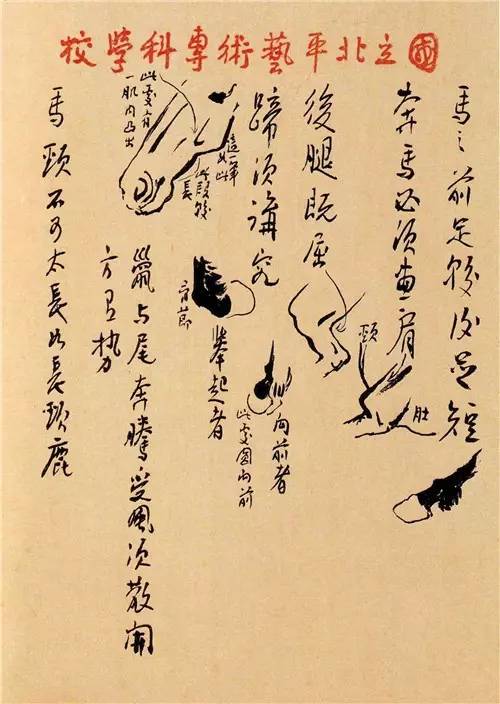 國立北平藝術專科學校
馬之前足較後足短
奔馬必須畫肩
頸
肚
後腿既屈
蹄須講究
向前者
此處圓向前
舉起者
這一筆如此
此段較長
此處有
一肌肉凸出
鬣与尾奔騰受風須散開
方有勢
馬頸不可太長如長頸鹿